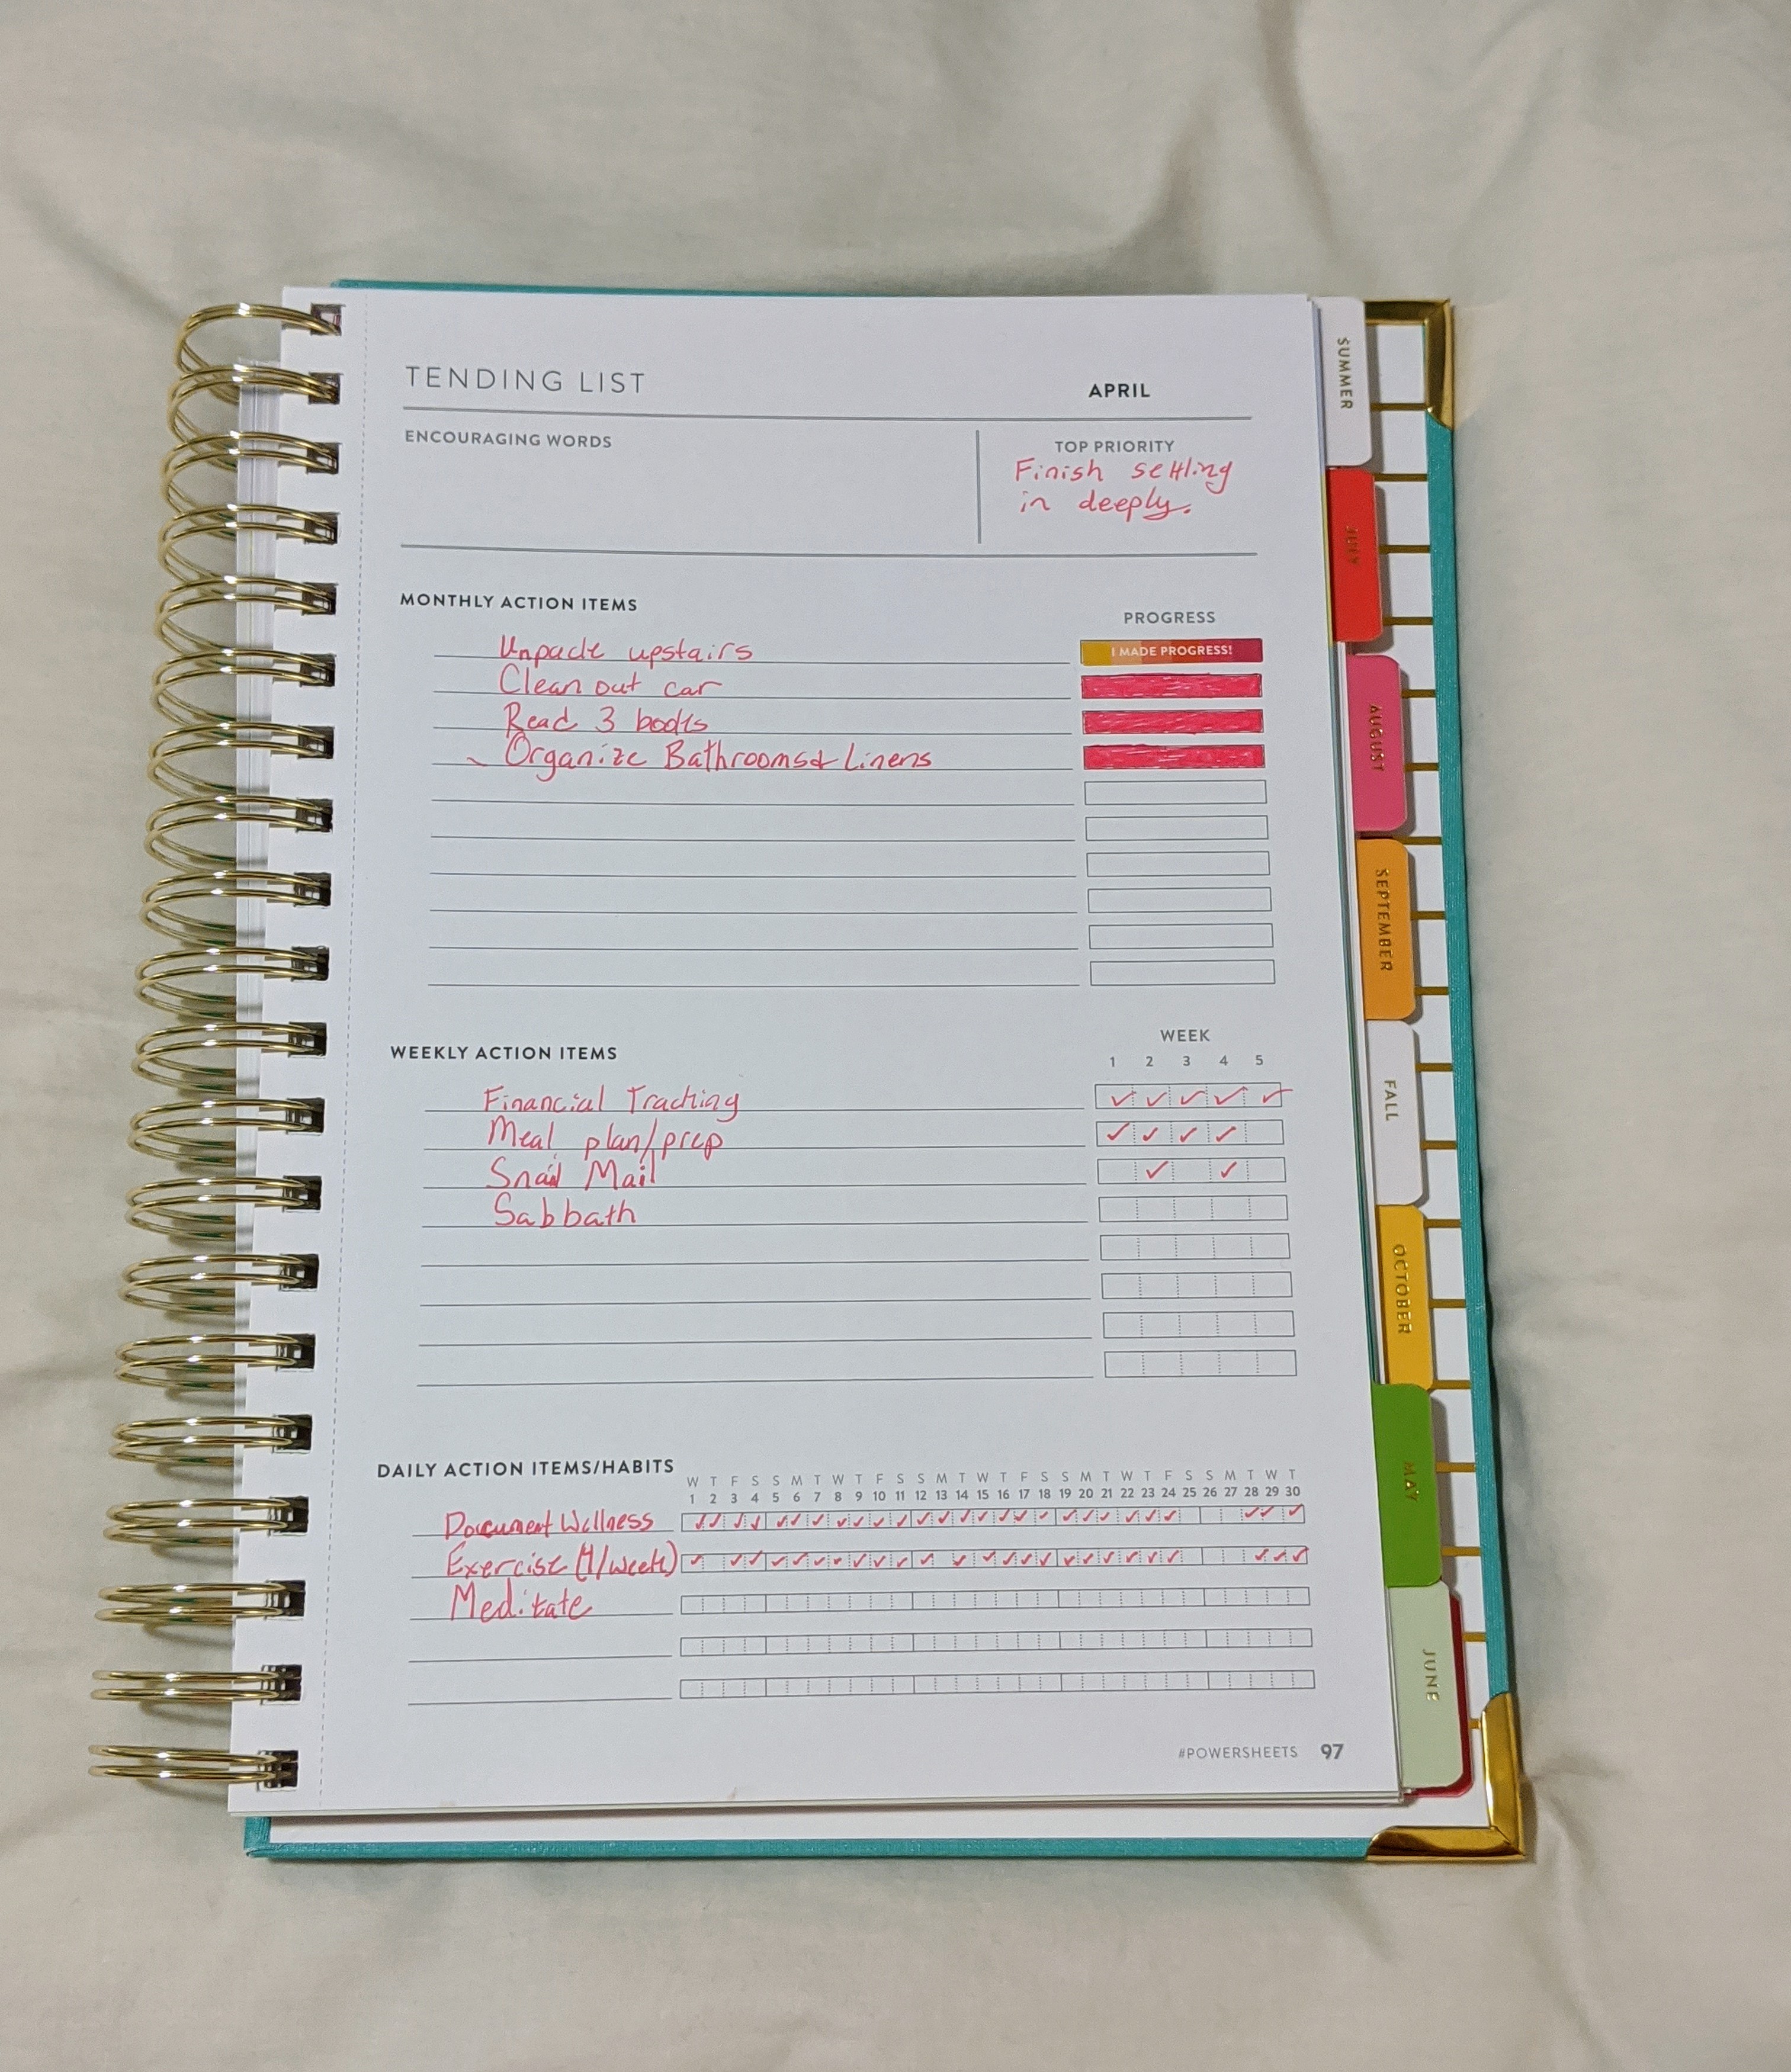 TENDING LIST
APRIL
ENCOURAGING WORDS
TOP PRIORITY
Finish settling
in deeply.
MONTHLY ACTION ITEMS
PROGRESS
Unpack upstairs
I MADE PROGRESS!
Clean out car
Read 3 books
Organize Bathrooms & Linens
WEEKLY ACTION ITEMS
WEEK
1 2 3 4 5
Financial Tracking ✓ ✓ ✓ ✓ ✓
Meal plan/prep ✓ ✓ ✓ ✓
Snail Mail ✓ ✓
Sabbath
DAILY ACTION ITEMS/HABITS
W T F S S M T W T F S S M T W T F S S M T W T F S S M T W T
1 2 3 4 5 6 7 8 9 10 11 12 13 14 15 16 17 18 19 20 21 22 23 24 25 26 27 28 29 30
Document Wellness
Exercise (4/week)
Meditate
#POWERSHEETS 97
SUMMER
JULY
AUGUST
SEPTEMBER
FALL
OCTOBER
MAY
JUNE